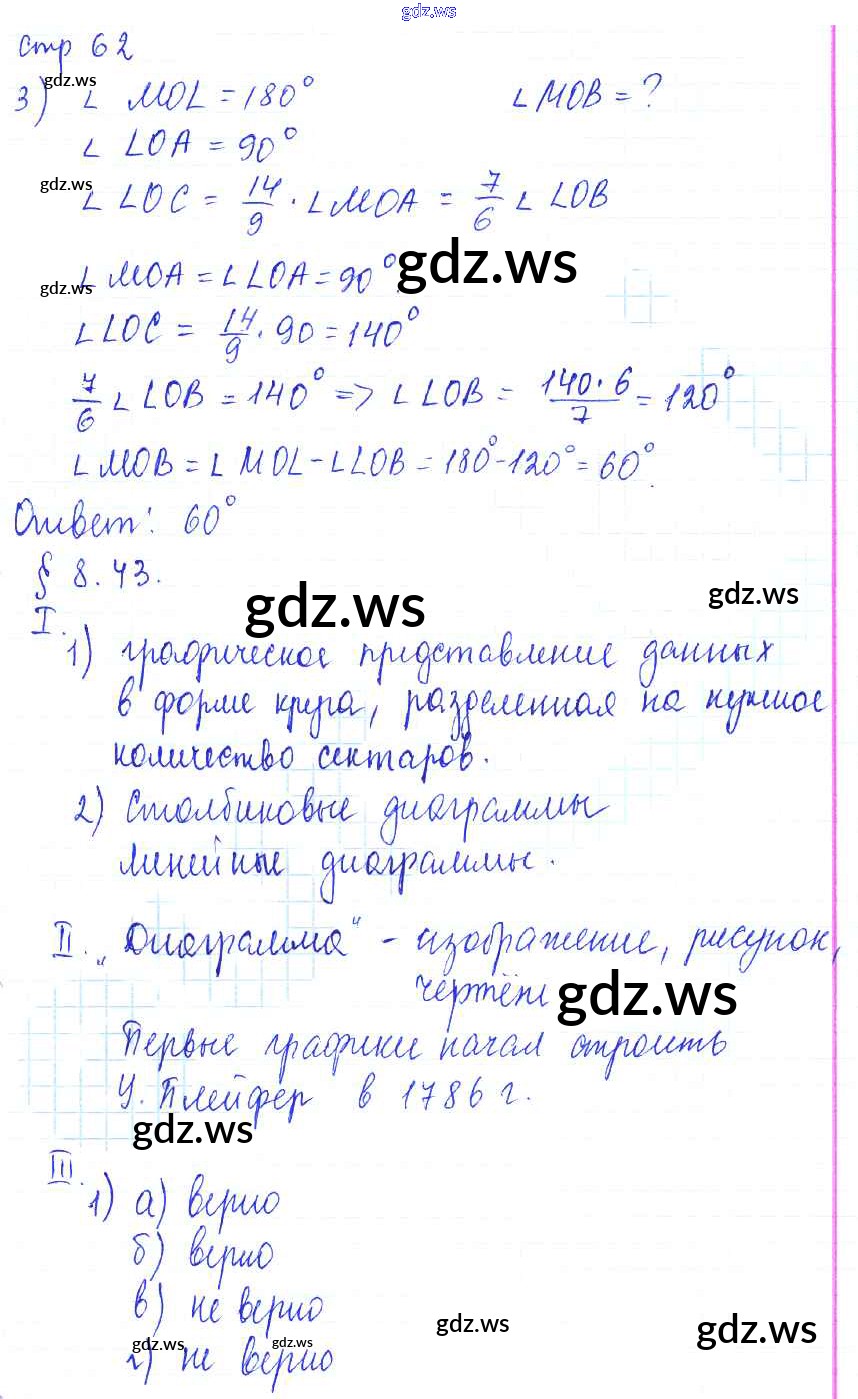 gdz.ws
стр 62
gdz.ws
3) ∠ MOL = 180° ∠ MOB = ?
∠ LOA = 90°
gdz.ws
∠ LOC = 14/9 · ∠ MOA = 7/6 ∠ LOB
gdz.ws
∠ MOA = ∠ LOA = 90°.
gdz.ws
∠ LOC = 14/9 · 90 = 140°
7/6 ∠ LOB = 140° => ∠ LOB = 140·6/7 = 120°
∠ MOB = ∠ MOL - ∠ LOB = 180° - 120° = 60°.
Ответ: 60°
§ 8.43.
gdz.ws
gdz.ws
I.
1) графическое представление данных
в форме круга, разделенная на нужное
количество сектаров.
2) Столбиковые диаграммы
линейные диаграммы.
II. „Диаграмма“ - изображение, рисунок,
чертёж
gdz.ws
Первые графики начал строить
У. Плейфер в 1786 г.
gdz.ws
III.
1) а) верно
б) верно
в) не верно
gdz.ws
gdz.ws
gdz.ws
gdz.ws
г) не верно